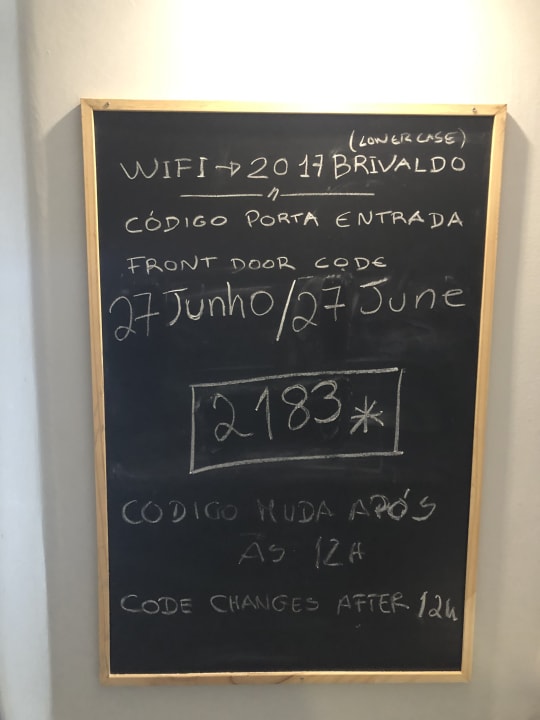 (LOWER CASE)
WIFI → 2017 BRIVALDO
CÓDIGO PORTA ENTRADA
FRONT DOOR CODE
27 Junho / 27 June
2183*
CÓDIGO MUDA APÓS
ÀS 12H
CODE CHANGES AFTER 12h